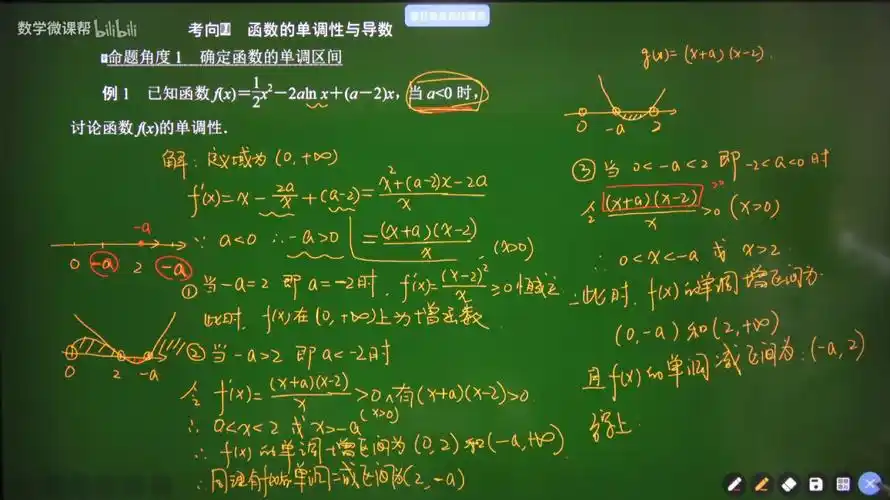 数学微课帮 bilibili
考向1 函数的单调性与导数
命题角度1 确定函数的单调区间
例1 已知函数f(x)=1/2x²-2aln x+(a-2)x,当a<0时,
讨论函数f(x)的单调性.
解:定义域为(0,+∞)
f'(x)=x-2a/x+(a-2)=x²+(a-2)x-2a/x
∵ a<0 ∴ -a>0 =(x+a)(x-2)/x .(x>0)
-a
0 -a 2 -a
① 当-a=2 即 a=-2时, f'(x)=(x-2)²/x ≥0恒成立
此时, f(x)在(0,+∞)上为增函数
② 当-a>2 即a<-2时
0 2 -a
令 f'(x)=(x+a)(x-2)/x >0,有(x+a)(x-2)>0
(x>0)
∴ 0<x<2 或 x>-a
∴ f(x)的单调增区间为(0,2)和(-a,+∞)
∴同理有f(x)的单调减区间为(2,-a)
g(x)=(x+a)(x-2).
0 -a 2
③ 当 0<-a<2 即-2<a<0时
令 (x+a)(x-2)/x >0 (x>0)
∴ 0<x<-a 或 x>2
此时, f(x)的单调增区间为
(0,-a)和(2,+∞)
且f(x)的单调减区间为:(-a,2)
综上